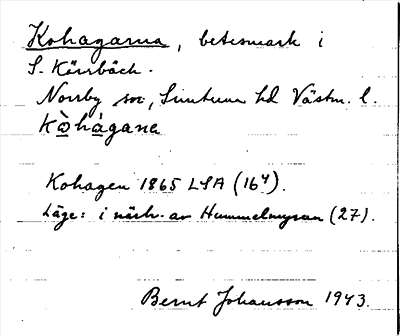 Kohagarna, betesmark i
S. Kärrbäck.
Norrby sn, Simtuna hd Västm. l.
kòhágana
Kohagen 1865 LSA (16⁴).
Läge: i närh. av Hummelmyran (27).
Bernt Johansson 1943.